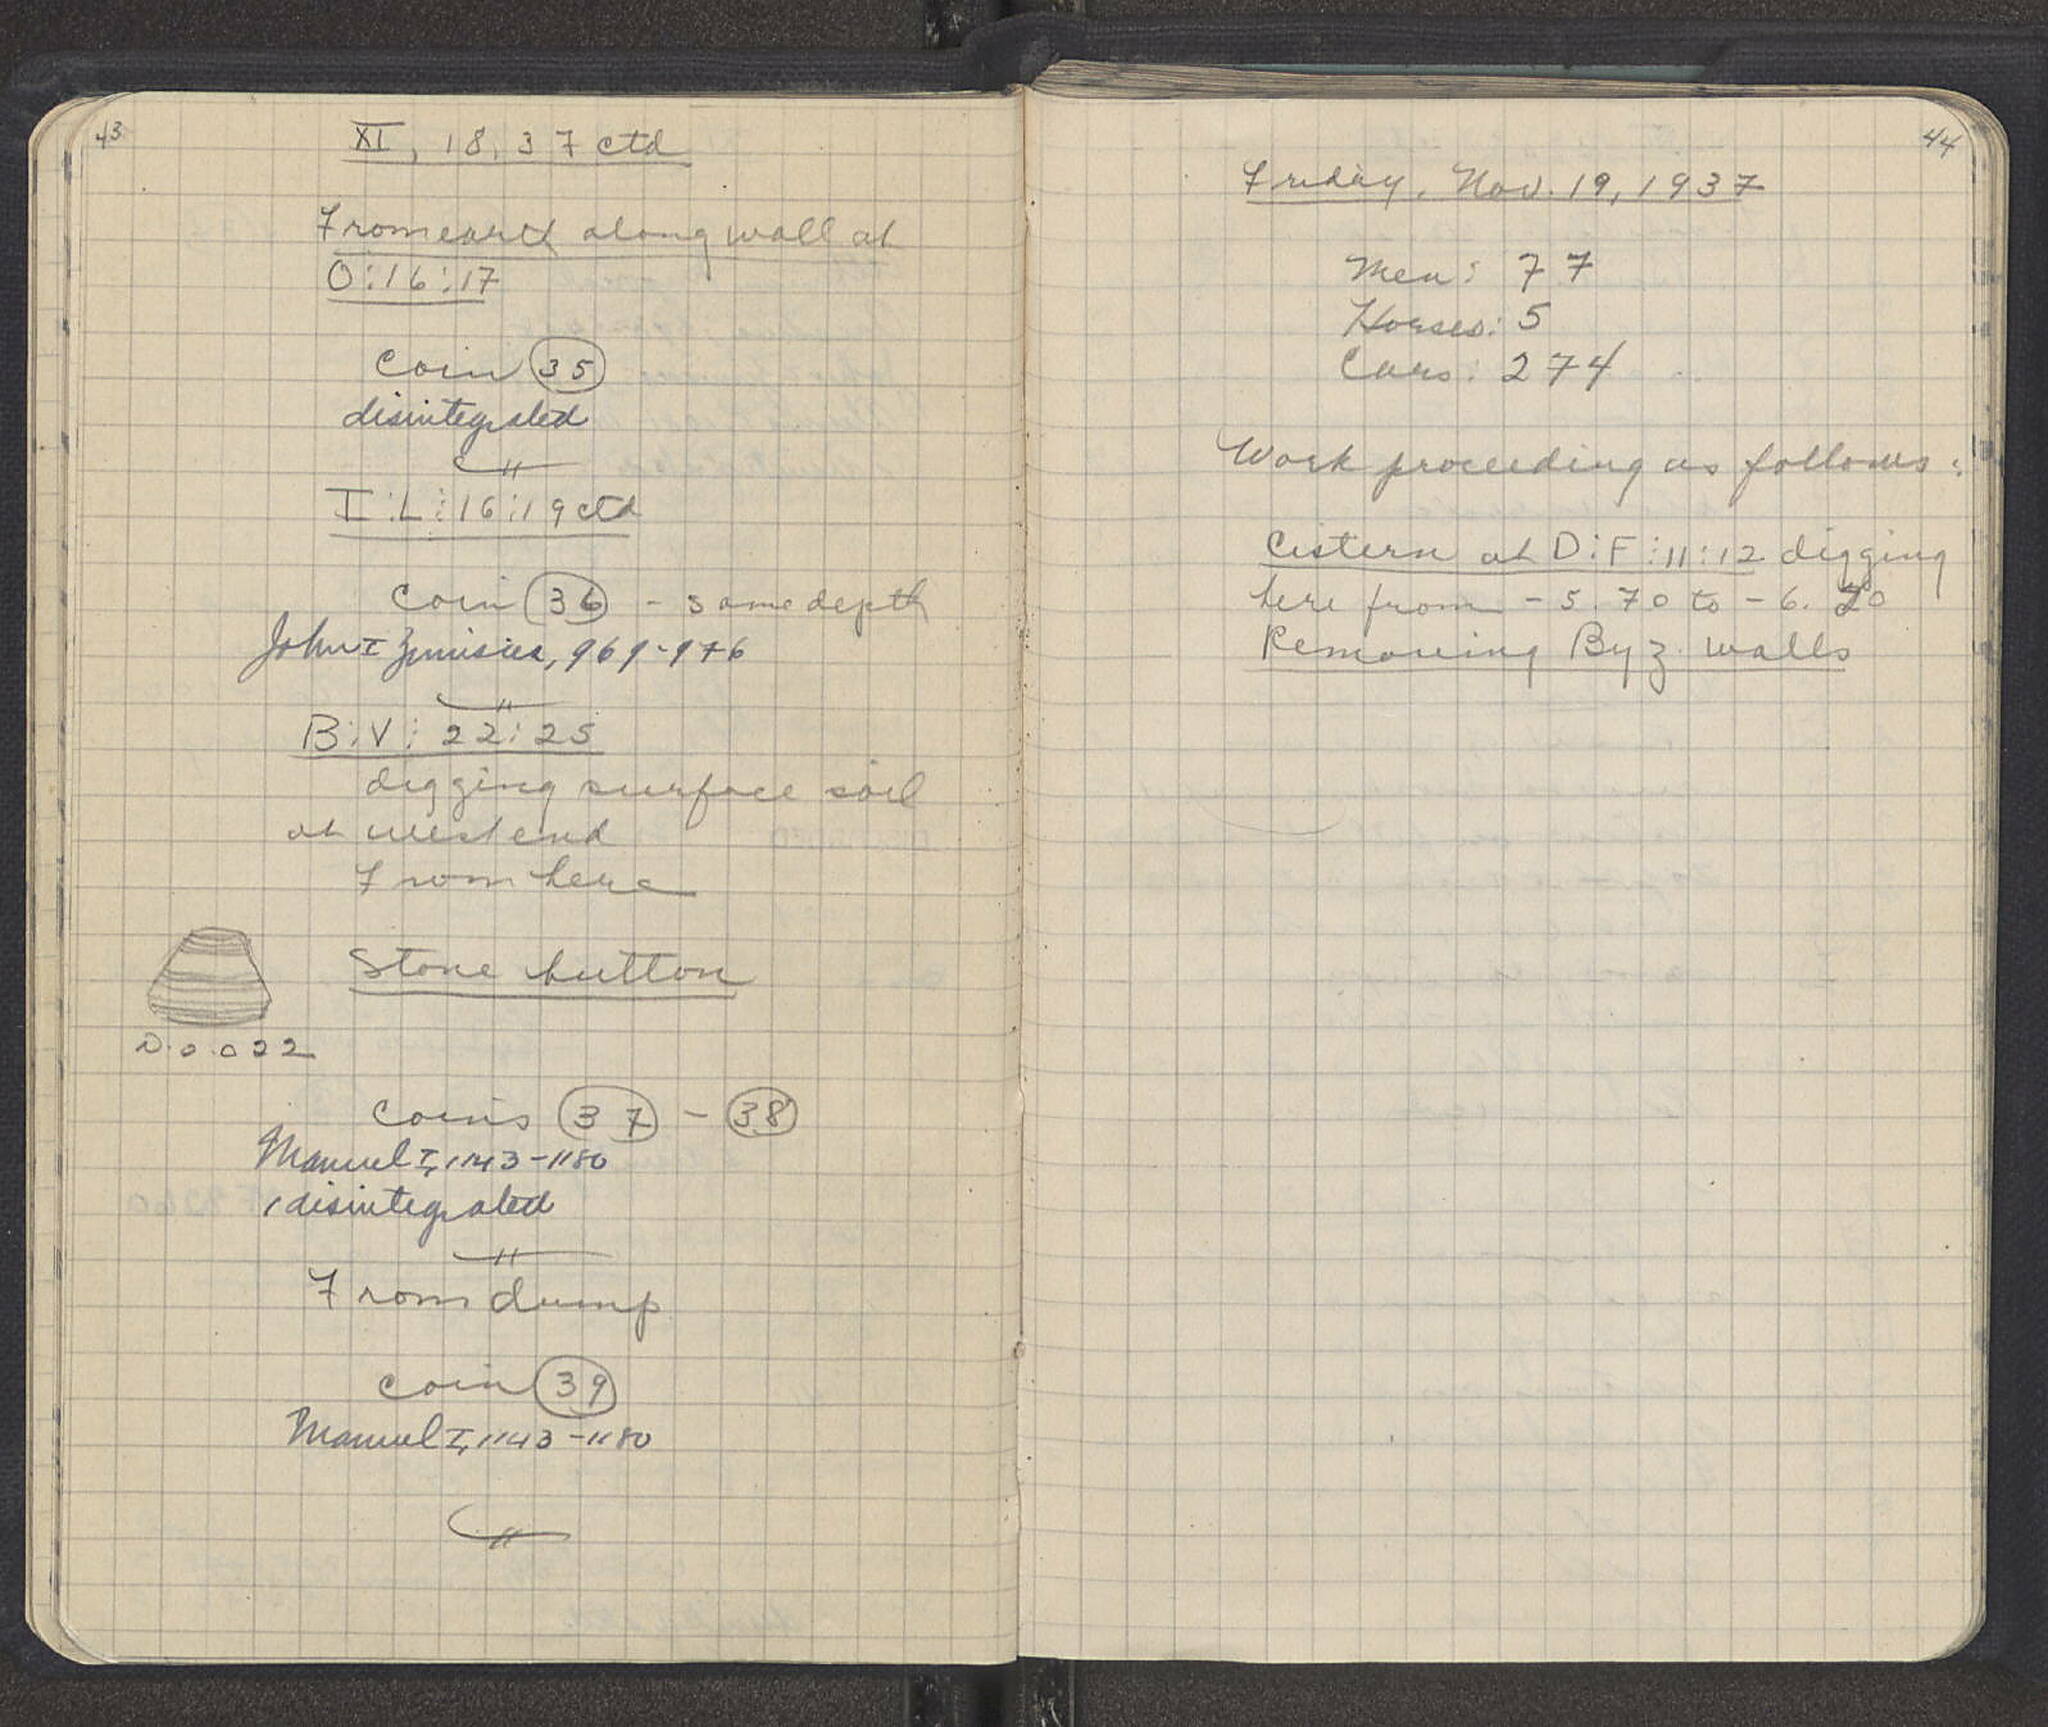 43
XI, 18, 37 ctd
From earth along wall at
O:16:17
Coin 35
disintegrated
I:L:16:19 ctd
Coin 36 - same depth
John I Zimisces, 969-976
B:V:22:25
digging surface soil
at west end
From here
Stone button
D. 0.022
Coins 37 - 38
Manuel I, 1143-1180
1 disintegrated
From dump
Coin 39
Manuel I, 1143-1180
44
Friday, Nov. 19, 1937
Men: 77
Horses: 5
Cars: 274
Work proceeding as follows:
Cistern at D:F:11:12 digging
here from -5.70 to -6.20
Removing Byz. walls